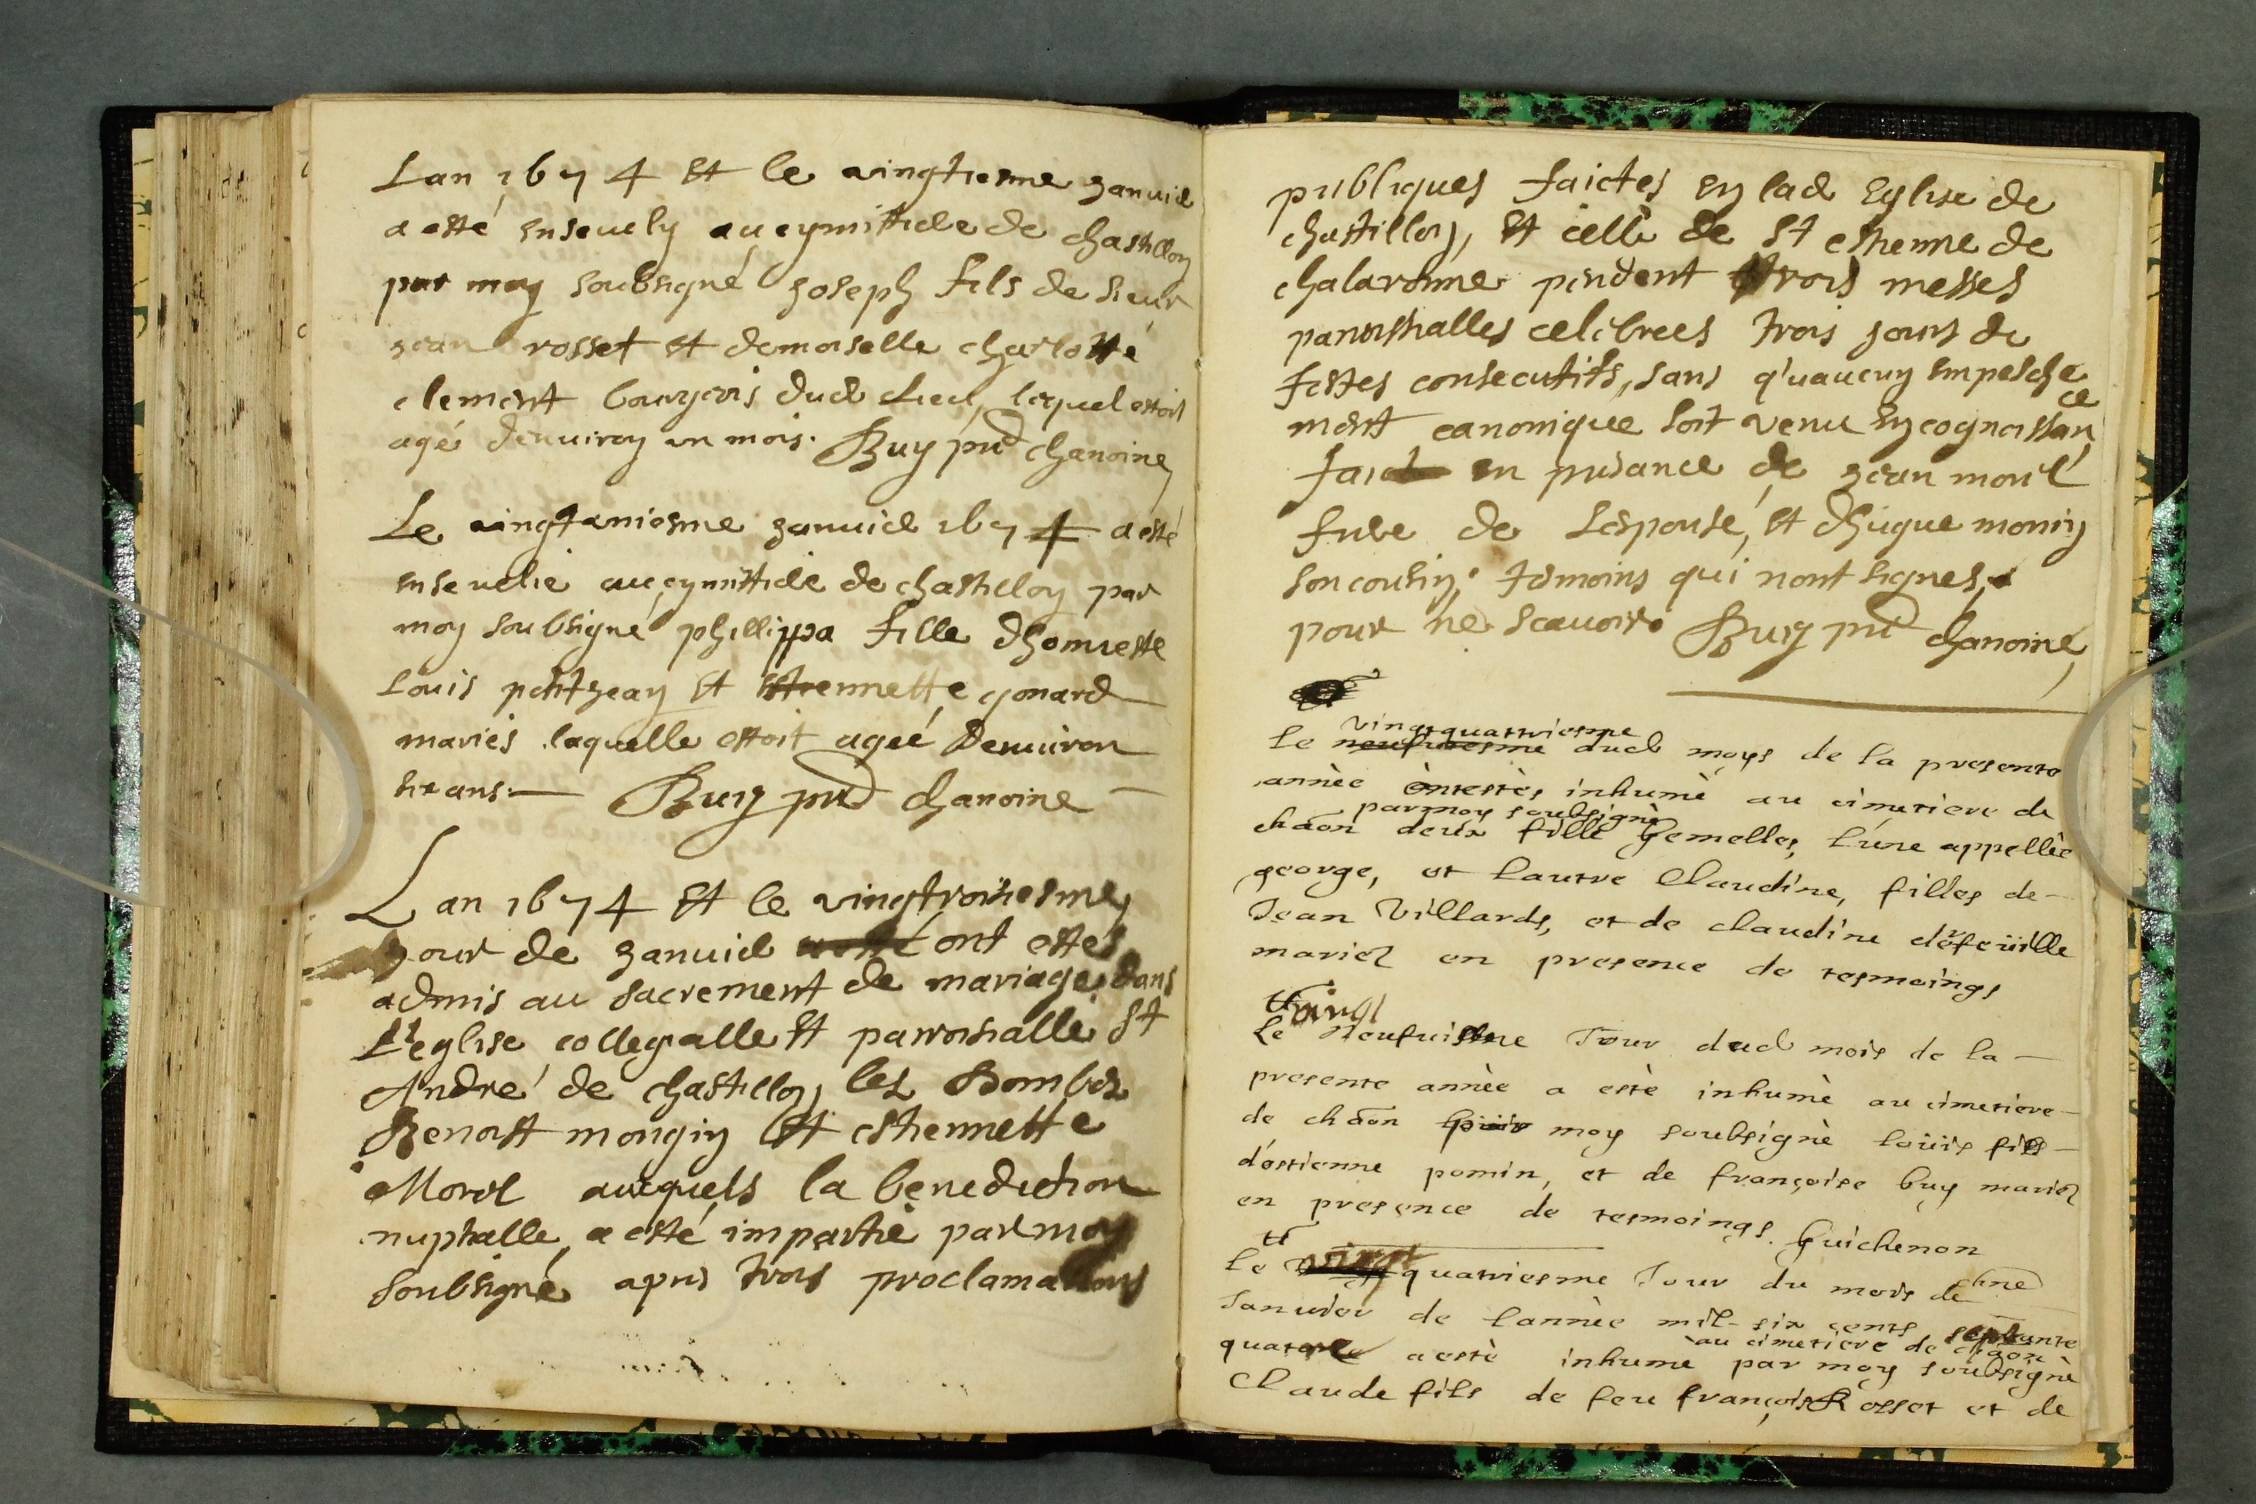 Lan 1674 Et le vingtiesme Januier
a esté Enseuely au cymittiere de chastillon
par moy soubsigné Joseph fils de sieur
Jean rosset Et demoiselle charlotte
clement bourgeois dud Lieu, lequel estoit
agé denuiron un mois. Buy pre chanoine
Le vingtuniesme Januier 1674 a esté
Enseuelie au cymittiere de chastillon par
moy soubsigné phillippa fille dhonneste
Louis petitJean Et Estiennette gonard
mariés laquelle estoit agée Denuiron
six ans. Buy pre chanoine
Lan 1674 Et le vingtroisiesme
Jour de Januier ont estés
admis au sacrement de mariage dans
L'eglise collegialle Et parroisialle St
André de chastillon les Dombes
Benoist mongin Et estiennette
Morel ausquels la benediction
nuptialle, a esté impartie par moy
soubsigné apres trois proclamations
publiques faictes En lad Eglise de
chastillon, Et celle de St estienne de
chalaronne pendent trois messes
parroissialles celebrees trois Jours de
festes consecutifs, sans qu'aucun Empesche
ment canonique soit venu En cognoissan
ce
faict en presance de Jean morel
frere de Lespouse, Et dhugue monin
son cousin, tesmoins qui nont signes
pour ne scauoir. Buy pre chanoine
vingtquatriesme
Le neufviesme dud moys de la presente
annèe ont estès inhumè au cimetiere de
par moy soubsignè
chãon deux fille Gemelles, l'une appellèe
george, et lautre Claudine, filles de
Jean Villards, et de claudine
mariez en presence de tesmoings
vingt
Le Neufuiesme Jour dud mois de la
presente annèe a estè inhumè au cimetiere
de chãon par moy soubsignè loüis fils
d'estienne pomin, et de françoise buy mariez
en presence de tesmoings. Guichenon
vingt
Le quatriesme Jour du mois de
Januier de lannèe mil six cents septante
au cimetiere de chãon
quatre a estè inhumè par moy soubsignè
Claude fils de feu françois Rosset et de